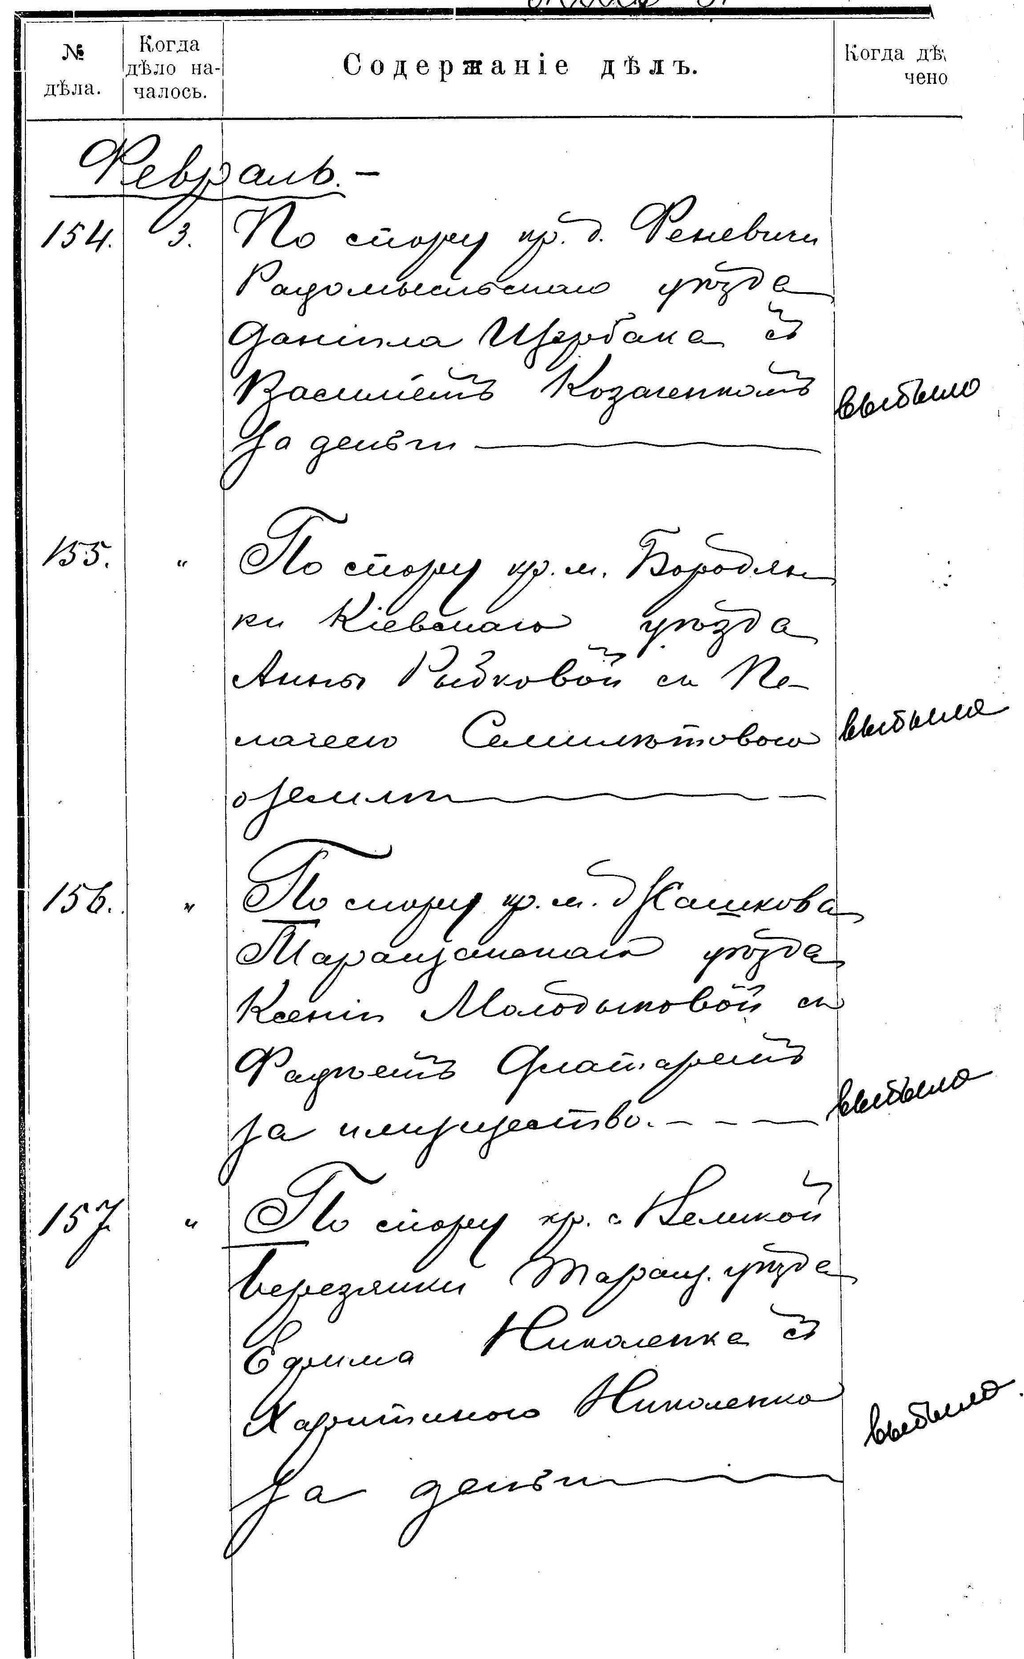 № дѣла.
Когда дѣло на-
чалось.
Содержаніе дѣлъ.
Когда дѣ
чено
Февраль. —
154. 3. По спору кр. д. Феневичи
Радомысльскаго уѣзда
Даніила Щербака съ
Василіемъ Козаченкомъ
за деньги
выбыло
155. „ По спору кр. м. Бородян
ки Кіевскаго уѣзда
Анны Рыбковой съ Пе-
лагеею
о земли
выбыло
156. „ По спору кр. м. Жашкова
Таращанскаго уѣзда
Ксеніи Молодыковой съ
Фадѣемъ
за имущество. — — —
выбыло
157 „ По спору кр. с Великой
Березянки Таращ. уѣзда
Ефима Николенка съ
Харитиною Николенко
за деньги
выбыло.